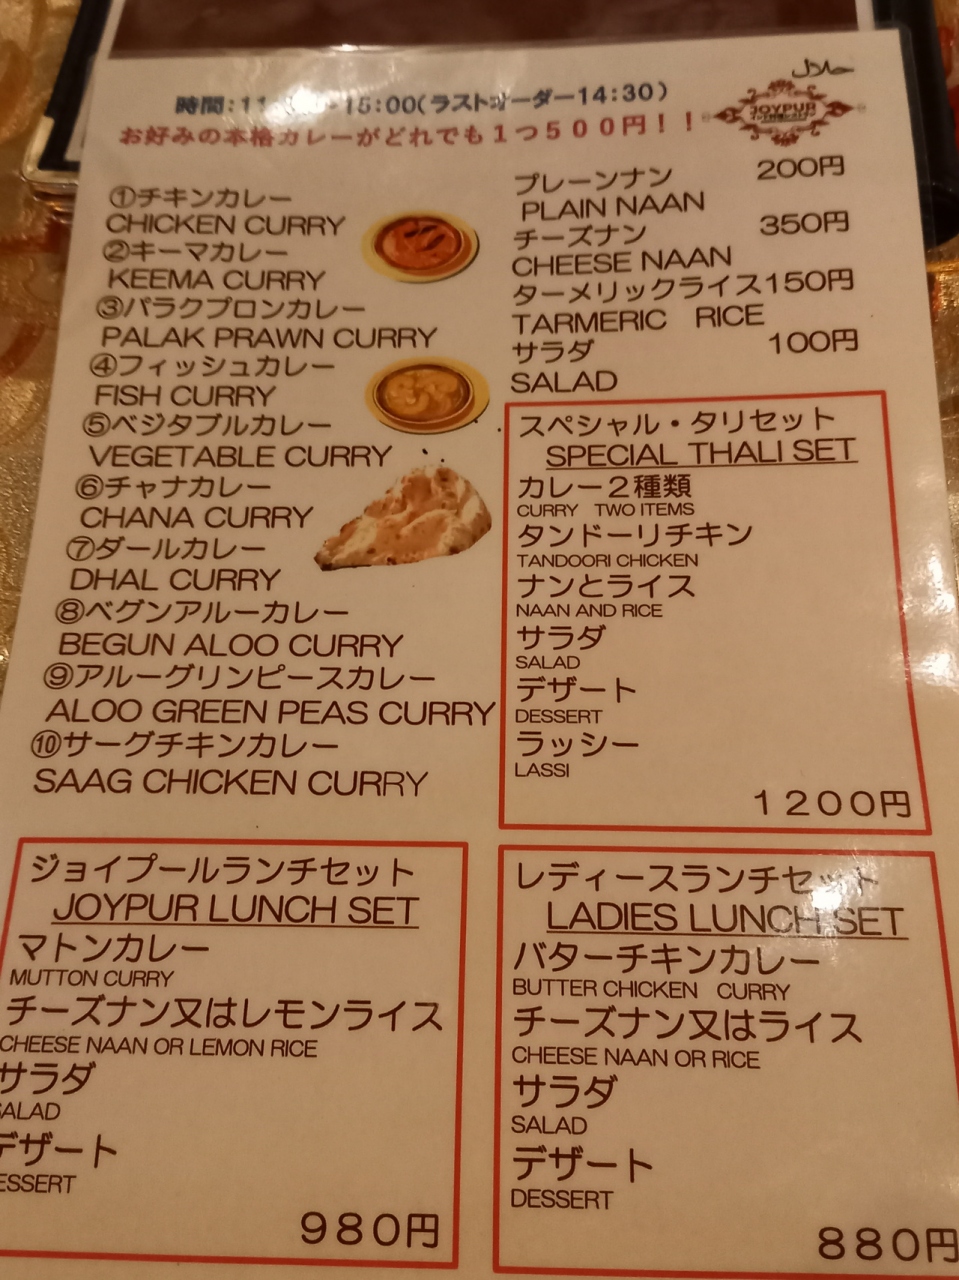 حلال
JOYPUR
時間:11 15:00(ラストオーダー14:30)
お好みの本格カレーがどれでも1つ500円!!
①チキンカレー
CHICKEN CURRY
②キーマカレー
KEEMA CURRY
③パラクプロンカレー
PALAK PRAWN CURRY
④フィッシュカレー
FISH CURRY
⑤ベジタブルカレー
VEGETABLE CURRY
⑥チャナカレー
CHANA CURRY
⑦ダールカレー
DHAL CURRY
⑧ベグンアルーカレー
BEGUN ALOO CURRY
⑨アルーグリンピースカレー
ALOO GREEN PEAS CURRY
⑩サーグチキンカレー
SAAG CHICKEN CURRY
プレーンナン 200円
PLAIN NAAN
チーズナン 350円
CHEESE NAAN
ターメリックライス150円
TARMERIC RICE
サラダ 100円
SALAD
スペシャル・タリセット
SPECIAL THALI SET
カレー2種類
CURRY TWO ITEMS
タンドーリチキン
TANDOORI CHICKEN
ナンとライス
NAAN AND RICE
サラダ
SALAD
デザート
DESSERT
ラッシー
LASSI
1200円
ジョイプールランチセット
JOYPUR LUNCH SET
マトンカレー
MUTTON CURRY
チーズナン又はレモンライス
CHEESE NAAN OR LEMON RICE
サラダ
SALAD
デザート
ESSERT
980円
レディースランチセット
LADIES LUNCH SET
バターチキンカレー
BUTTER CHICKEN CURRY
チーズナン又はライス
CHEESE NAAN OR RICE
サラダ
SALAD
デザート
DESSERT
880円